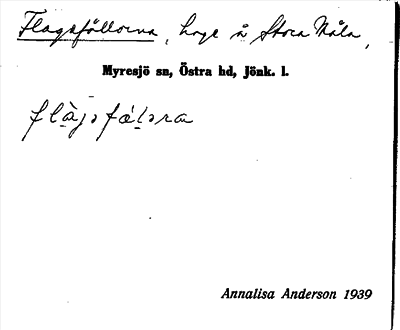 Flagsfållorna, hage å Stora Måla,
Myresjö sn, Östra hd, Jönk. l.
Annalisa Anderson 1939